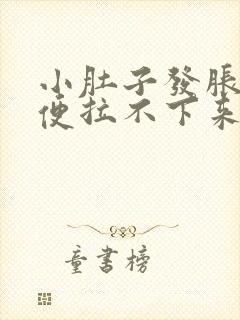 小肚子發脹
便拉不下來
童書榜